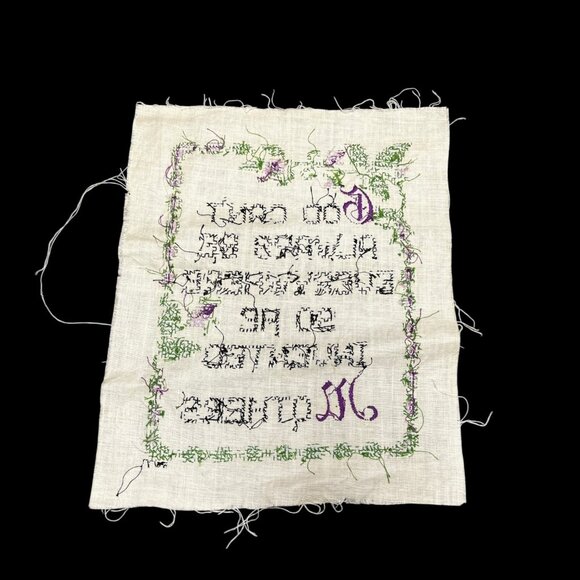 GOD CAN'T
ALWAYS BE
EVERYWHERE
SO HE
INVENTED
MOTHERS